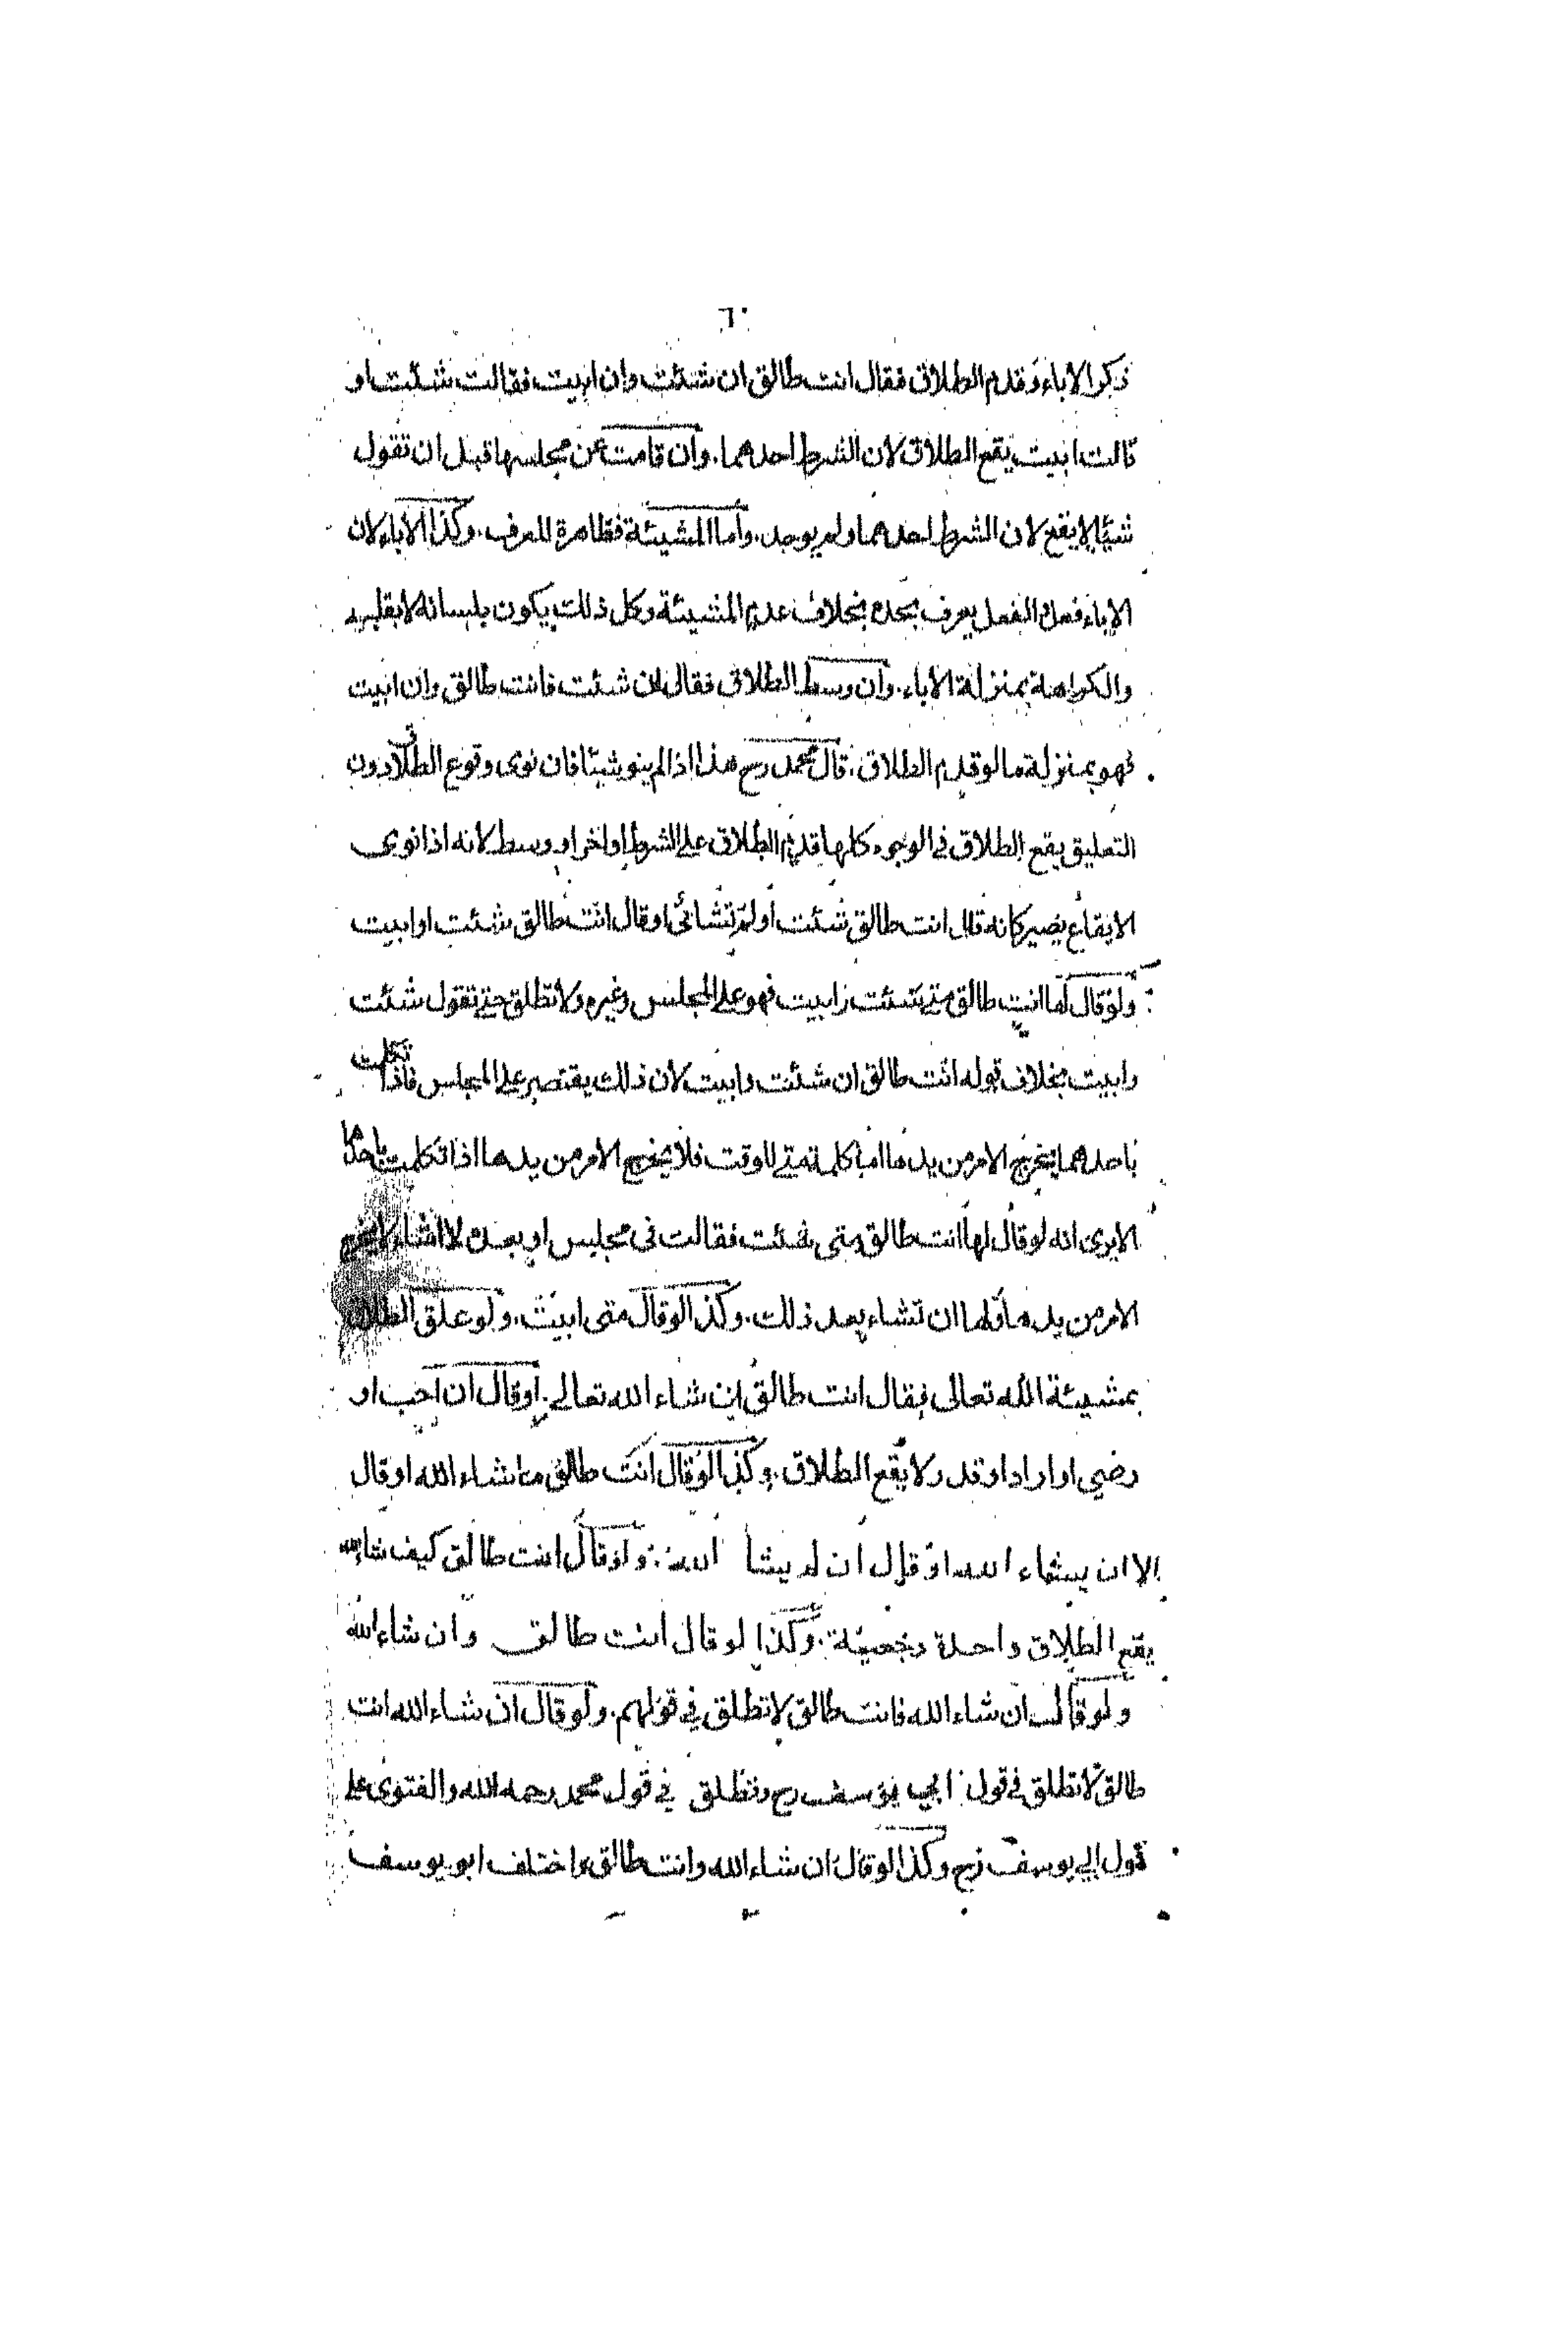 ٦٠
ذكر الاباء وقدم الطلاق فقال انت طالق ان شئت وان ابيت فقالت شئت او
قالت ابيت يقع الطلاق لان الشرط احدهما. وان قامت عن مجلسها قبل ان تقول
شيئا لا يقع لان الشرط احدهما ولم يوجد. وأما المشيئة فظاهرة للعرف. وكذا الاباء لان
الاباء فعل والفعل يعرف بحده بخلاف عدم المشيئة وكل ذلك يكون بلسانه لا بقلبه
والكراهة بمنزلة الاباء. وان وسط الطلاق فقال ان شئت فانت طالق وان ابيت
فهو بمنزلة ما لو قدم الطلاق. قال محمد رح هذا اذا لم ينو شيئا فان نوى وقوع الطلاق دون
التعليق يقع الطلاق في الوجوه كلها قدم الطلاق على الشرط او اخر او وسط لانه اذا نوى
الايقاع يصير كانه قال انت طالق شئت او لم تشائى او قال انت طالق شئت او ابيت
ولو قال لها انت طالق متى شئت وابيت فهو على المجلس وغيره ولا تطلق حتى تقول شئت
وابيت بخلاف قوله انت طالق ان شئت وابيت لان ذلك يقتصر على المجلس فاذا تكلمت
باحدهما يخرج الامر من يدها اما كلمة متى للوقت فلا يخرج الامر من يدها اذا تكلمت باحدهما
الا يرى انه لو قال لها انت طالق متى شئت فقالت فى مجلس او بعده لا اشاء لا يخرج
الامر من يدها ولها ان تشاء بعد ذلك. وكذا لو قال متى ابيت. ولو علق الطلاق
بمشيئة الله تعالى فقال انت طالق ان شاء الله تعالى. او قال ان احب او
رضي او اراد او قدر لا يقع الطلاق. وكذا لو قال انت طالق ما شاء الله او قال
الا ان يشاء الله او قال ان لم يشأ الله. ولو قال انت طالق كيف شاء الله
يقع الطلاق واحدة رجعية. وكذا لو قال انت طالق وان شاء الله
ولو قال ان شاء الله فانت طالق لا تطلق في قولهم. ولو قال ان شاء الله انت
طالق لا تطلق في قول ابي يوسف رح وتطلق في قول محمد رحمه الله والفتوى على
قول ابي يوسف رح وكذا لو قال ان شاء الله وانت طالق واختلف ابو يوسف